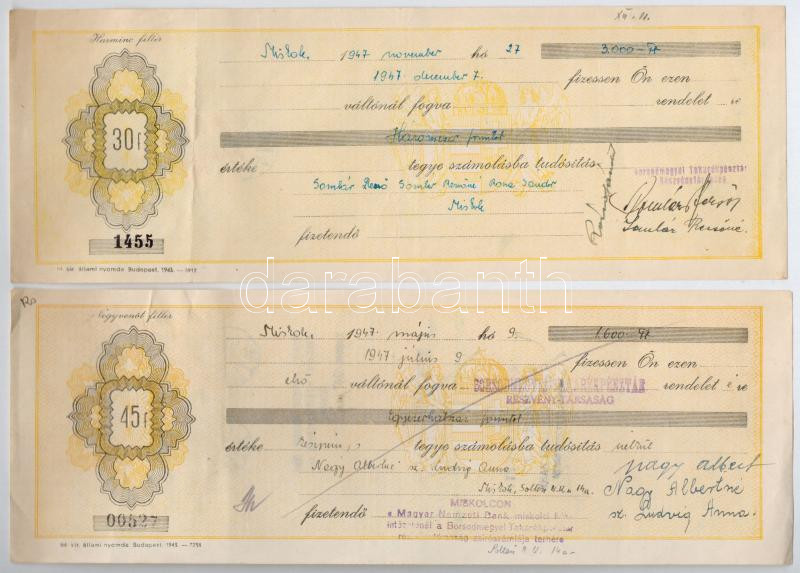 XII. 11.
Harminc fillér
Miskolc, 1947 november hó 27 3.000-Ft
1947. december 7. fizessen Ön ezen
váltónál fogva rendelet re
30 f
Háromezer forintot
értéke tegye számolásba tudósítás
Borsodmegyei Takarékpénztár
Somlár Somlár Rezsőné Rona Sándor
Miskolc
Somlár Rezsőné
fizetendő
1455
M. kir. állami nyomda. Budapest, 1943. —
darabanth
Negyvenöt fillér
Miskolc, 1947. május hó 9. 1.600-Ft
1947 július 9 fizessen Ön ezen
első váltónál fogva BORSODMEGYEI TAKARÉKPÉNZTÁR rendelet re
RÉSZVÉNY-TÁRSASÁG
45 f
Egyezerhatszáz forintot
értéke tegye számolásba tudósítás nélkül
Nagy Albertné sz. Ludvig Anna
nagy albert
Miskolc,
Nagy Albertné
MISKOLCON
sz. Ludvig Anna.
fizetendő
a Magyar Nemzeti Bank miskolci
intézeténél a Borsodmegyei Takarékpénztár
részvénytársaság zsirószámlája terhére
00527
M. kir. állami nyomda. Budapest, 1943. —